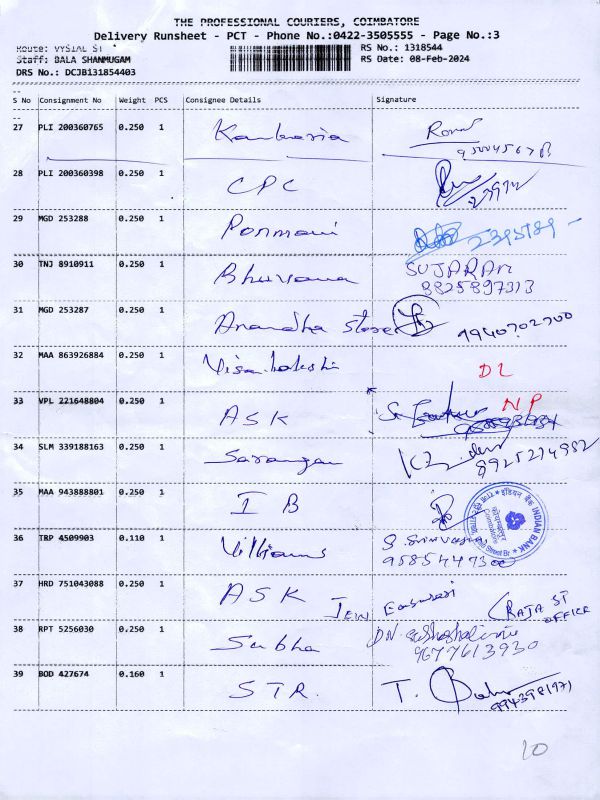 THE PROFESSIONAL COURIERS, COIMBATORE
Delivery Runsheet - PCT - Phone No.:0422-3505555 - Page No.:3
Route: VYSIAL ST RS No.: 1318544
Staff: BALA SHANMUGAM RS Date: 08-Feb-2024
DRS No.: DCJB131854403
S No Consignment No Weight PCS Consignee Details Signature
27 PLI 200360765 0.250 1
28 PLI 200360398 0.250 1 CPC
29 MGD 253288 0.250 1 Ponmani 2395789
30 TNJ 8910911 0.250 1 Bhuvana SUJARAM
8825897313
31 MGD 253287 0.250 1 Anandha Store 9940702700
32 MAA 863926884 0.250 1 Visalakshi DL
33 VPL 221648804 0.250 1 ASK NP
34 SLM 339188163 0.250 1 Sarangan 8925214982
35 MAA 943888801 0.250 1 I B
INDIAN BANK
इंडियन बैंक
36 TRP 4509903 0.110 1 Williams
37 HRD 751043088 0.250 1 ASK Easwari RAJA ST
OFFICE
38 RPT 5256030 0.250 1 Subha
9677613930
39 BOD 427674 0.160 1 STR. T. Babu
9943981971
10